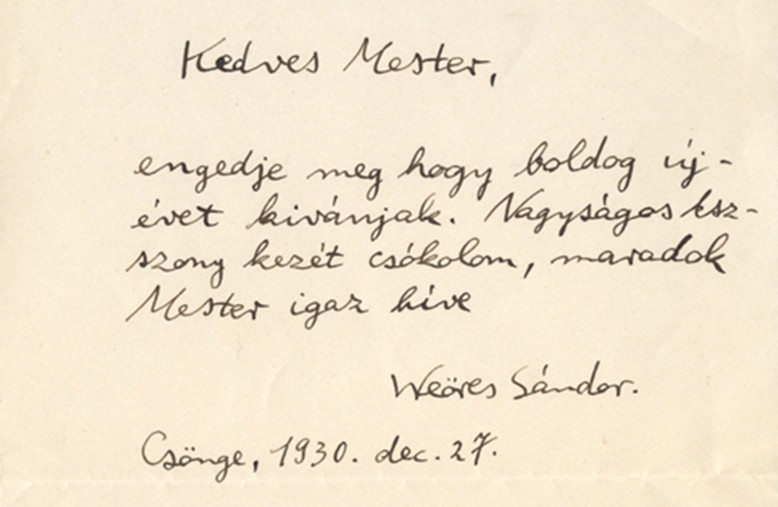 Kedves Mester,
engedje meg hogy boldog új-
évet kivánjak. Nagyságos Asz-
szony kezét csókolom, maradok
Mester igaz híve
Weöres Sándor.
Csönge, 1930. dec. 27.